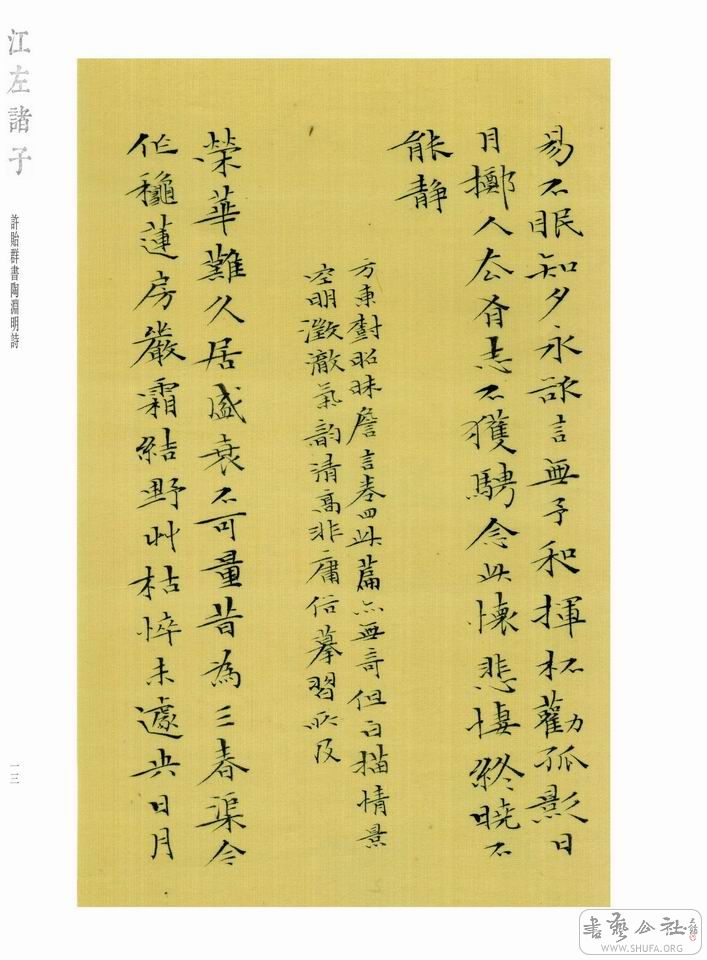 易不眠知夕永欲言無予和揮杯勸孤影日
月擲人去有志不獲騁念此懷悲悽終曉不
能静
方東樹昭昧詹言卷四此篇亦無奇但白描情景
空明澂澈氣韵清高非庸俗摹習所及
榮華難久居盛衰不可量昔為三春渠今
作穐蓮房嚴霜結野艸枯悴未遽央日月
江左諸子
許貽群書陶淵明詩
一三
書藝公社
WWW.SHUFA.ORG